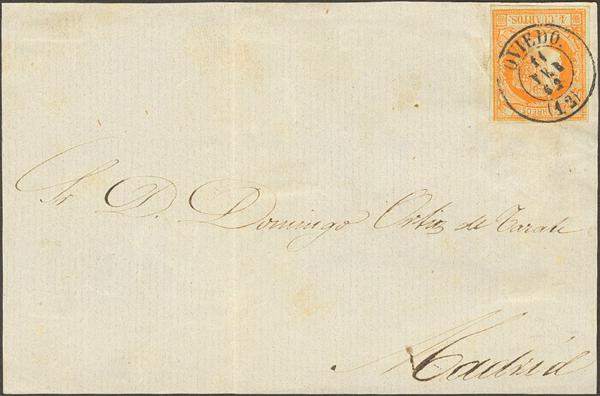 4 CUARTOS
OVIEDO.
11
62
(12)
Sr. D. Domingo Ortiz de Zarate
Madrid